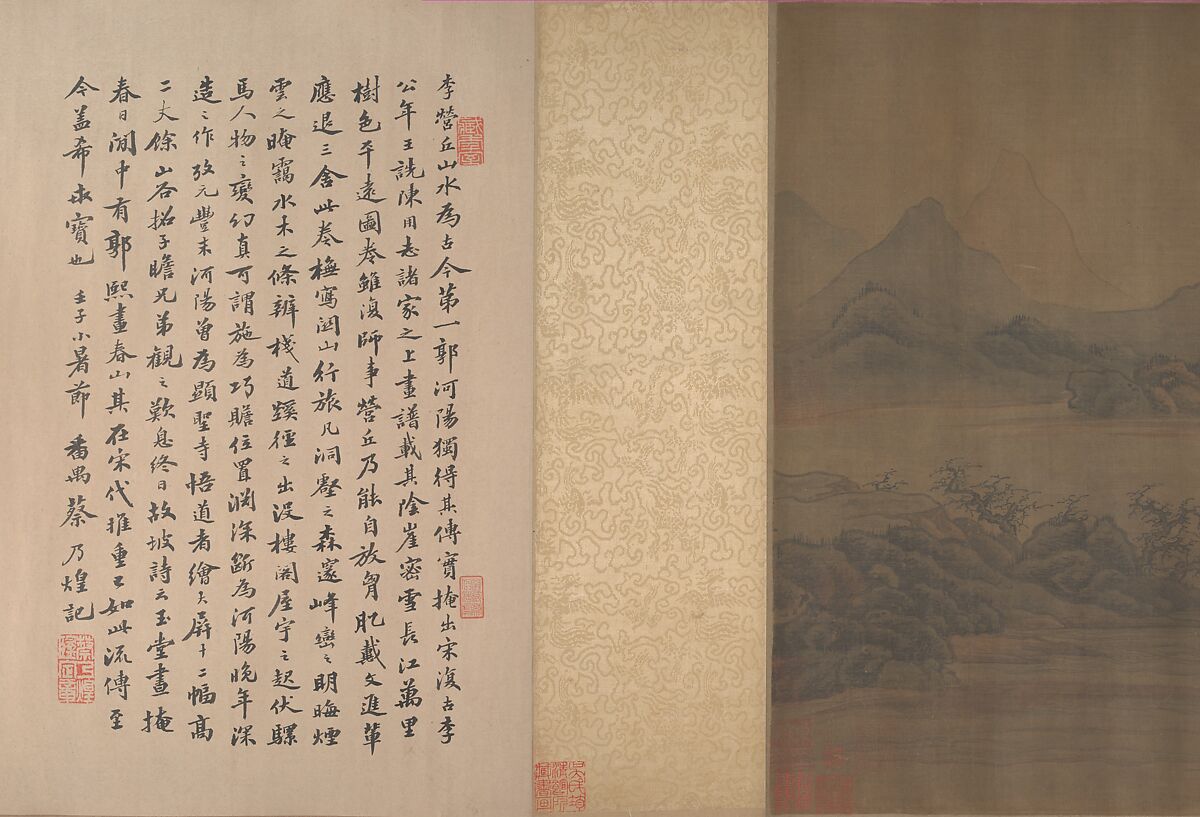 李營丘山水為古今第一郭河陽獨得其傳實掩出宋復古李
公年王詵陳用志諸家之上畫譜載其陰崖密雪長江萬里
樹色平遠圖卷雖復師事營丘乃能自放胷肊戴文進輩
應退三舍此卷橅寫關山行旅凡洞壑之森邃峰巒之明晦煙
雲之晻靄水木之條辨棧道蹊徑之出沒樓閣屋宇之起伏騾
馬人物之變幻真可謂施為巧贍位置淵深斷為河陽晚年深
造之作攷元豐末河陽曾為顯聖寺悟道者繪大屏十二幅高
二丈餘山谷招子瞻兄弟觀之歎息終日故坡詩云玉堂晝掩
春日閒中有郭熙畫春山其在宋代推重已如此流傳至
今蓋希世寶也 壬子小暑節 番禺蔡乃煌記